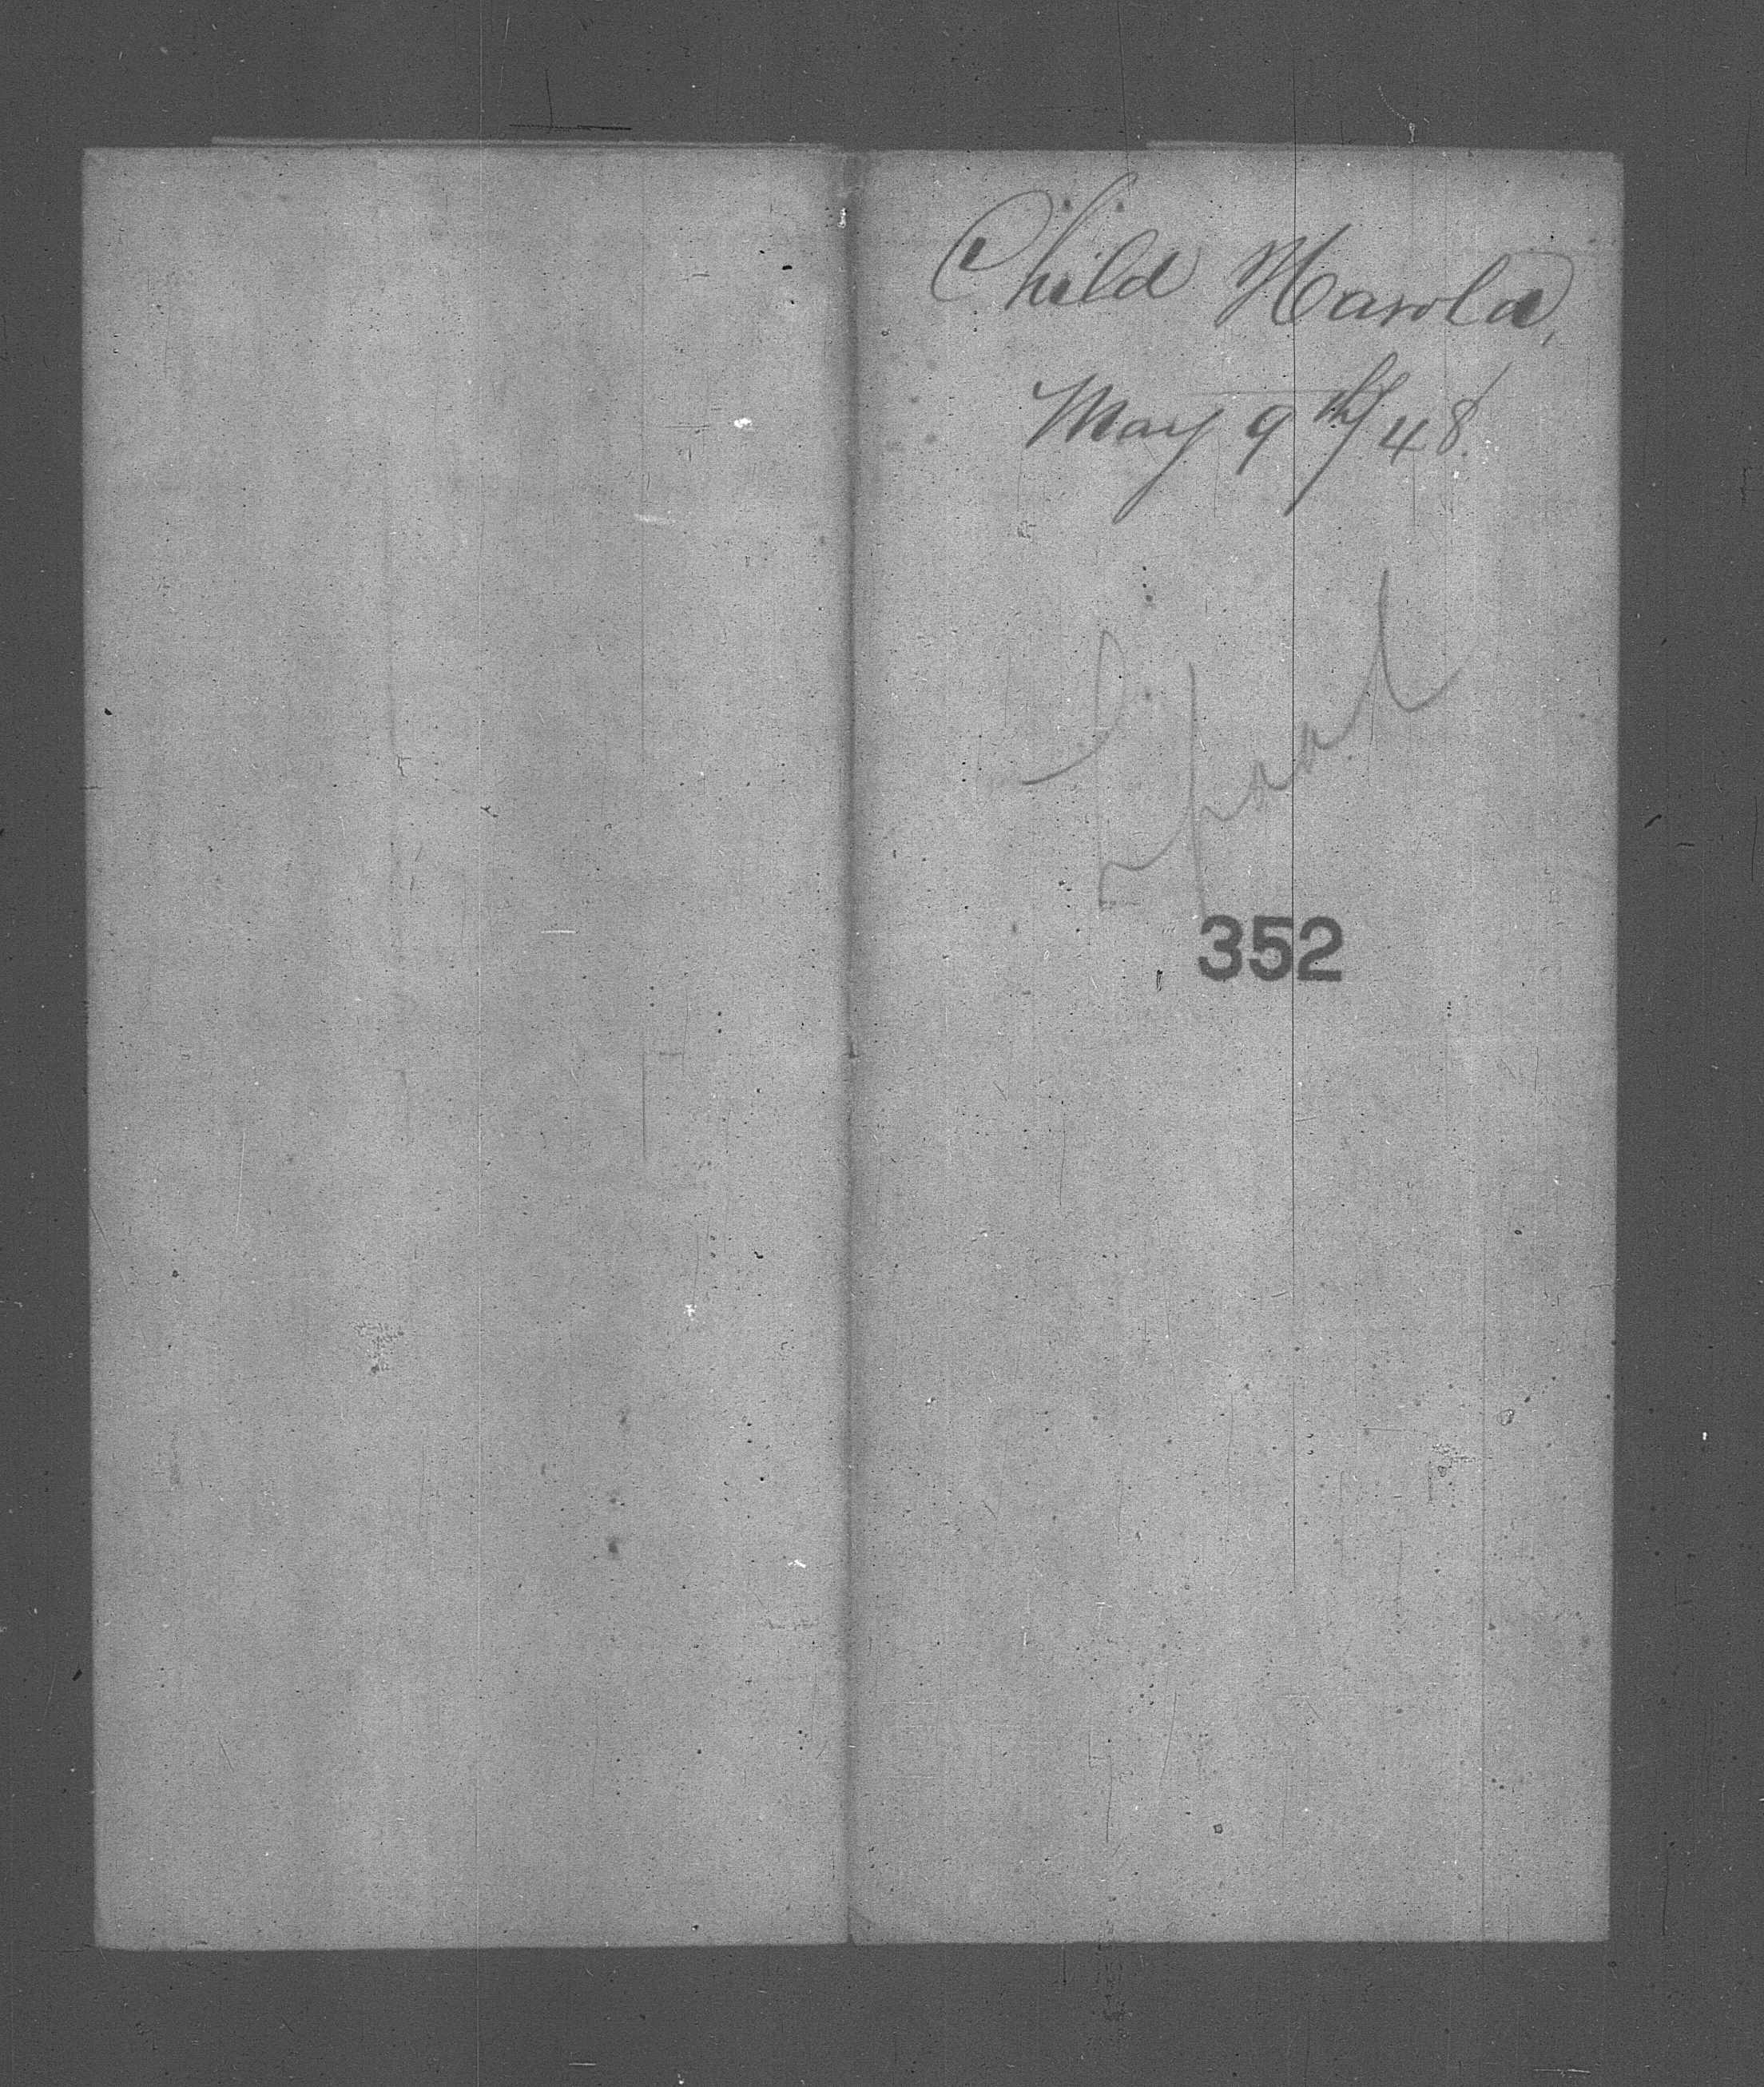 Child Harold,
May 9th/48.
352